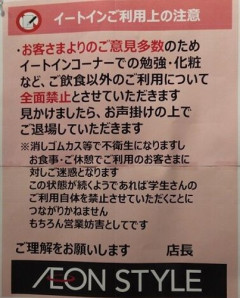 イートインご利用上の注意
・お客さまよりのご意見多数のため
イートインコーナーでの勉強・化粧
など、ご飲食以外のご利用について
全面禁止とさせていただきます
見かけましたら、お声掛けの上で
ご退場していただきます
※消しゴムカス等で不衛生になりますし
お食事・ご休憩でご利用のお客さまに
対しご迷惑となります
この状態が続くようであれば学生さんの
ご利用自体を禁止させていただくことに
つながりかねません
もちろん営業妨害としてです
ご理解をお願いします　店長
ÆON STYLE